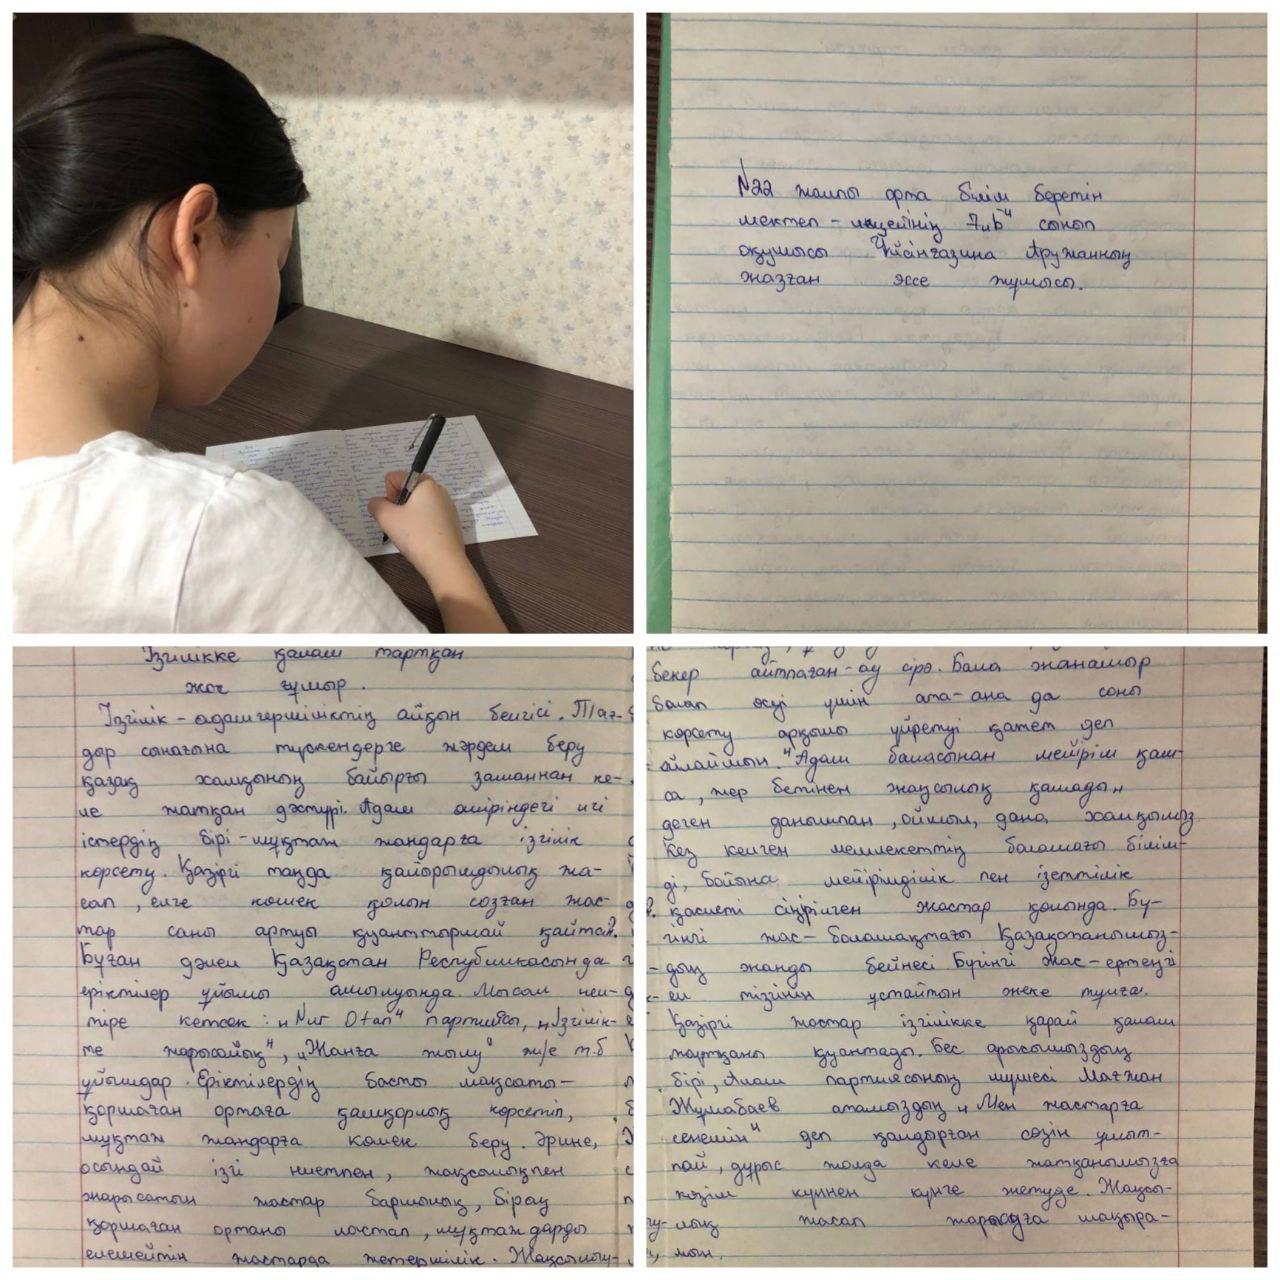 №22 жалпы орта білім беретін
мектеп-лицейінің 7„b“ сынып
оқушысы Үйсінғазина Аружанның
жазған эссе жұмысы.
Ізгілікке қалам тартқан
жас ғұмыр.
Ізгілік-адамгершіліктің айқын белгісі. Тағ-
дар сынағына түскендерге жәрдем беру
қазақ халқының байырғы заманнан ке-
ле жатқан дәстүрі. Адам өміріндегі игі
істердің бірі-мұқтаж жандарға ізгілік
көрсету. Қазіргі таңда қайырымдылық жа-
сап, елге көмек қолын созған жас-
тар саны артуы қуанттырмай қайтсін?
Бұған дәлел Қазақстан Республикасында
еріктілер ұйымы ашылуында. Мысал кел-
тіре кетсек: „Nur Otan“ партиясы, „Ізгілік-
те жарысайық“, „Жанға жылу“ ж/е т.б
ұйымдар. Еріктілердің басты мақсаты-
қоршаған ортаға қамқорлық көрсетіп,
мұқтаж жандарға көмек беру. Әрине,
осындай ізгі ниетпен, жақсылықпен
жарысатын жастар баршылық, бірақ
қоршаған ортаны ластап, мұқтаждарды
елемейтін жастарда жетерлілік. Жақсылығ-
бекер айтпаған-ау сірә. Бала жанашыр
болып өсуі үшін ата-ана да соны
көрсету арқылы үйретуі қажет деп
ойлаймын. „Адам баласынан мейірім қаш-
са, жер бетінен жақсылық қашады„
деген данышпан, ойшыл, дана халқымыз
Кез келген мемлекеттің болашағы білім-
ді, бойына мейірімділік пен ізеттілік
қасиеті сіңірілген жастар қолында. Бү-
гінгі жас-болашақтағы Қазақстанымыз-
дың жанды бейнесі. Бүгінгі жас-ертеңгі
ел тізгінін ұстайтын жеке тұлға.
Қазіргі жастар ізгілікке қарай қалам
тартқаны қуантады. Бес арысымыздың
бірі, Алаш партиясының мүшесі Мағжан
Жұмабаев атамыздың „Мен жастарға
сенемін“ деп қалдырған сөзін ұмыт-
пай, дұрыс жолда келе жатқанымызға
көзім күннен күнге жетуде. Жақсы-
лық жасап жарысуға шақыра-
мын.